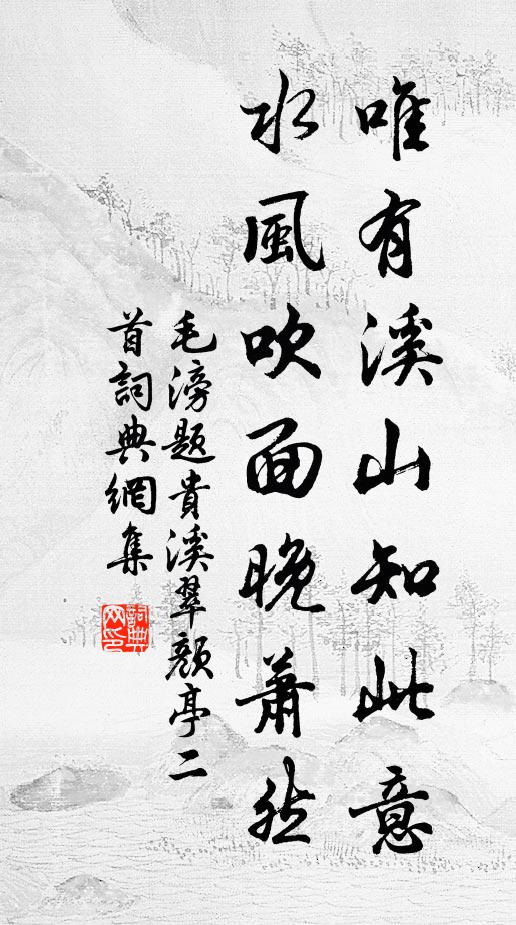 唯有溪山知此意
水風吹面晚蕭然
毛滂題貴溪翠顏亭二
首詞典網集
詞典網印